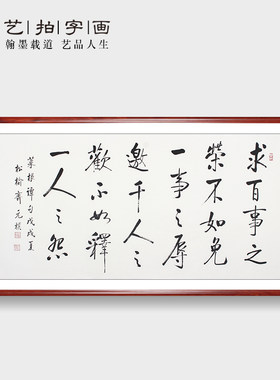 艺拍字画
翰墨载道 艺品人生
求百事之
榮不如免
一事之辱
邀千人之
歡不如釋
一人之怨
菜根譚句戊戌夏